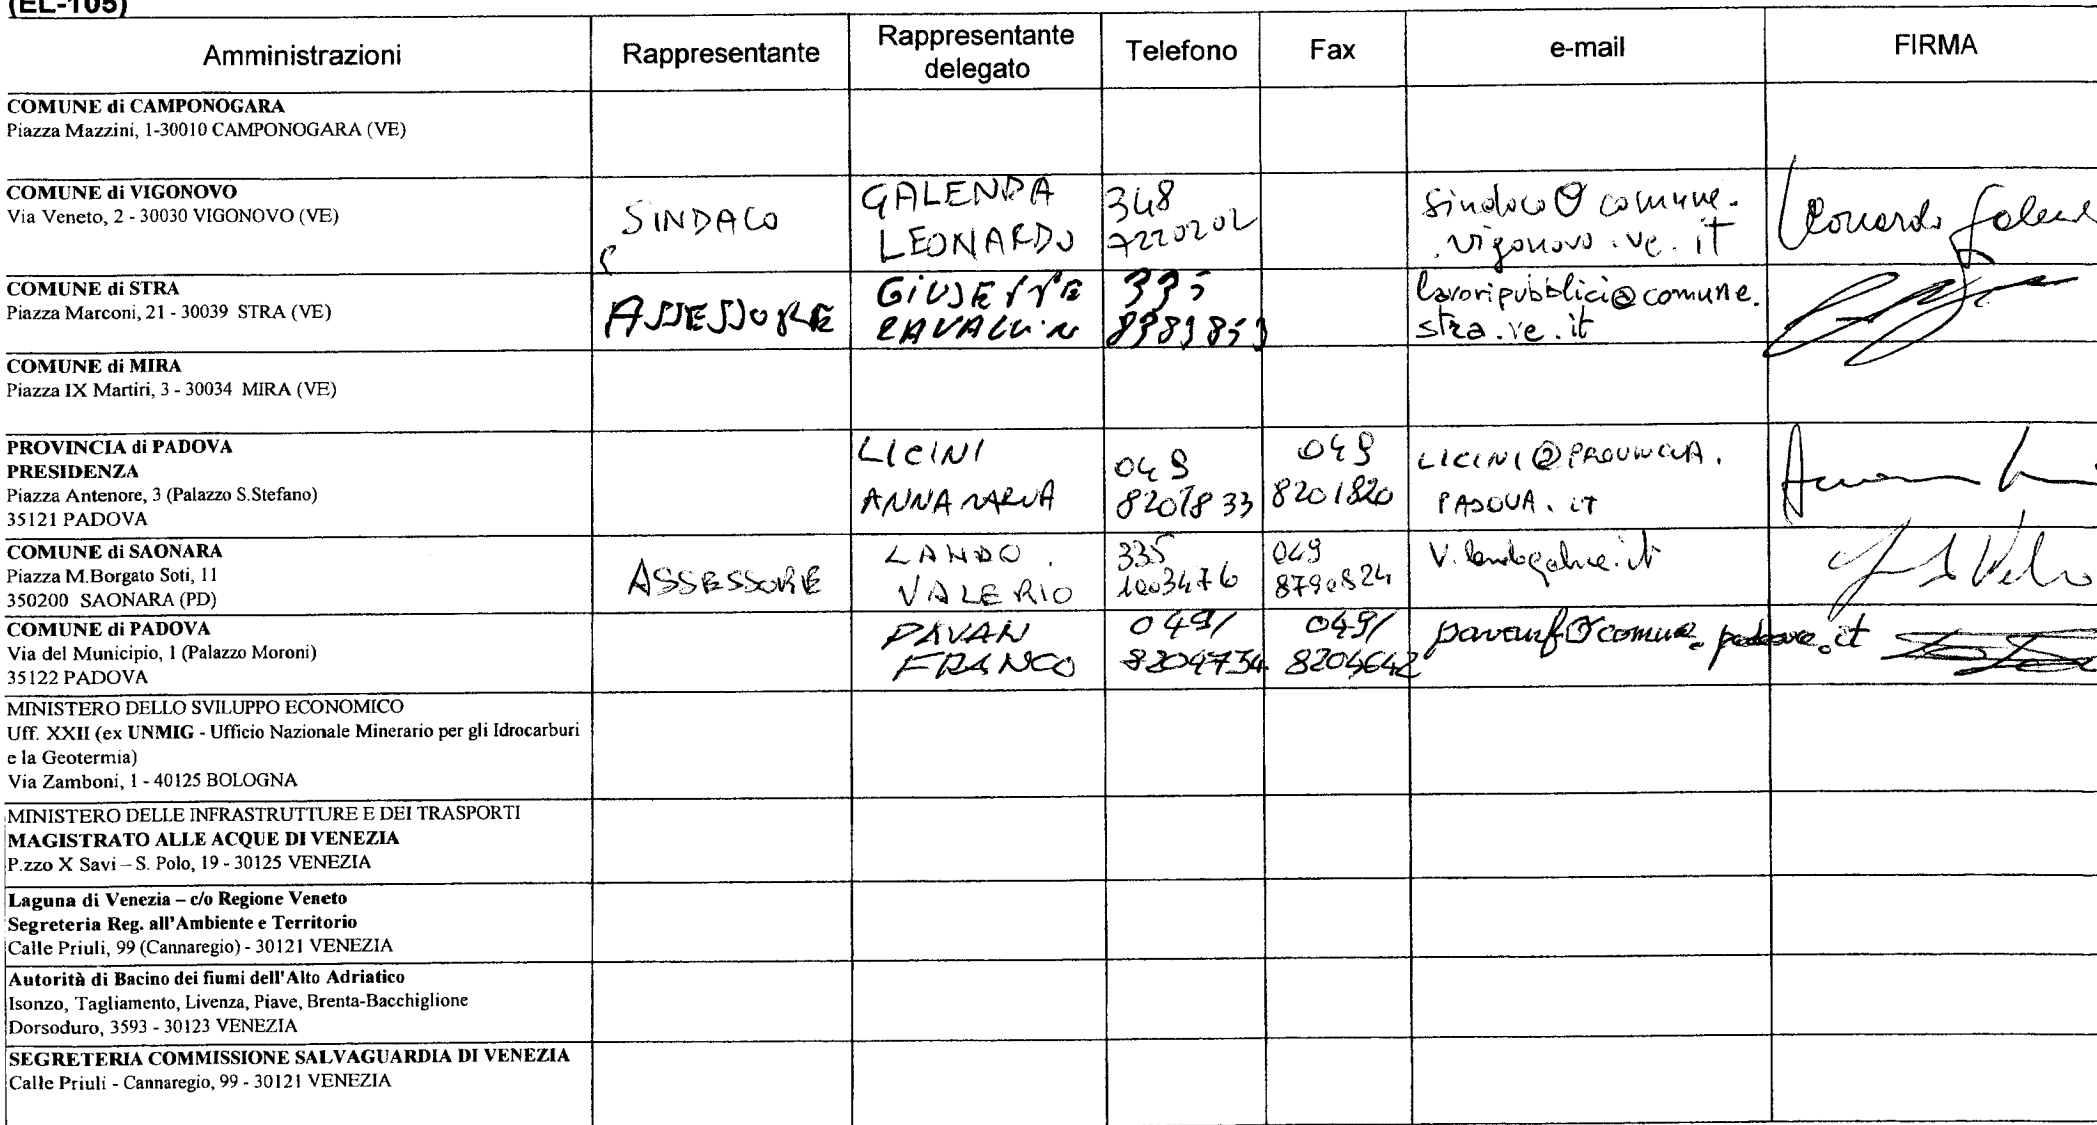 (EL-105)
Amministrazioni
Rappresentante
Rappresentante
delegato
Telefono
Fax
e-mail
FIRMA
COMUNE di CAMPONOGARA
Piazza Mazzini, 1-30010 CAMPONOGARA (VE)
COMUNE di VIGONOVO
Via Veneto, 2 - 30030 VIGONOVO (VE)
SINDACO
GALENDA
LEONARDO
348
7220202
sindaco@comune.
vigonovo.ve.it
Leonardo
COMUNE di STRA
Piazza Marconi, 21 - 30039 STRA (VE)
ASSESSORE
GIUSEPPE
335
lavoripubblici@comune.
stra.ve.it
COMUNE di MIRA
Piazza IX Martiri, 3 - 30034 MIRA (VE)
PROVINCIA di PADOVA
PRESIDENZA
Piazza Antenore, 3 (Palazzo S.Stefano)
35121 PADOVA
LICINI
ANNAMARIA
049
8201833
049
8201820
LICINI@PROVINCIA.
PADOVA.IT
COMUNE di SAONARA
Piazza M.Borgato Soti, 11
350200 SAONARA (PD)
ASSESSORE
LANDO
VALERIO
335
049
8790824
COMUNE di PADOVA
Via del Municipio, 1 (Palazzo Moroni)
35122 PADOVA
PAVAN
FRANCO
049/
8204734
049/
8204642
pavanf@comune.padova.it
MINISTERO DELLO SVILUPPO ECONOMICO
Uff. XXII (ex UNMIG - Ufficio Nazionale Minerario per gli Idrocarburi
e la Geotermia)
Via Zamboni, 1 - 40125 BOLOGNA
MINISTERO DELLE INFRASTRUTTURE E DEI TRASPORTI
MAGISTRATO ALLE ACQUE DI VENEZIA
P.zzo X Savi – S. Polo, 19 - 30125 VENEZIA
Laguna di Venezia – c/o Regione Veneto
Segreteria Reg. all'Ambiente e Territorio
Calle Priuli, 99 (Cannaregio) - 30121 VENEZIA
Autorità di Bacino dei fiumi dell'Alto Adriatico
Isonzo, Tagliamento, Livenza, Piave, Brenta-Bacchiglione
Dorsoduro, 3593 - 30123 VENEZIA
SEGRETERIA COMMISSIONE SALVAGUARDIA DI VENEZIA
Calle Priuli - Cannaregio, 99 - 30121 VENEZIA